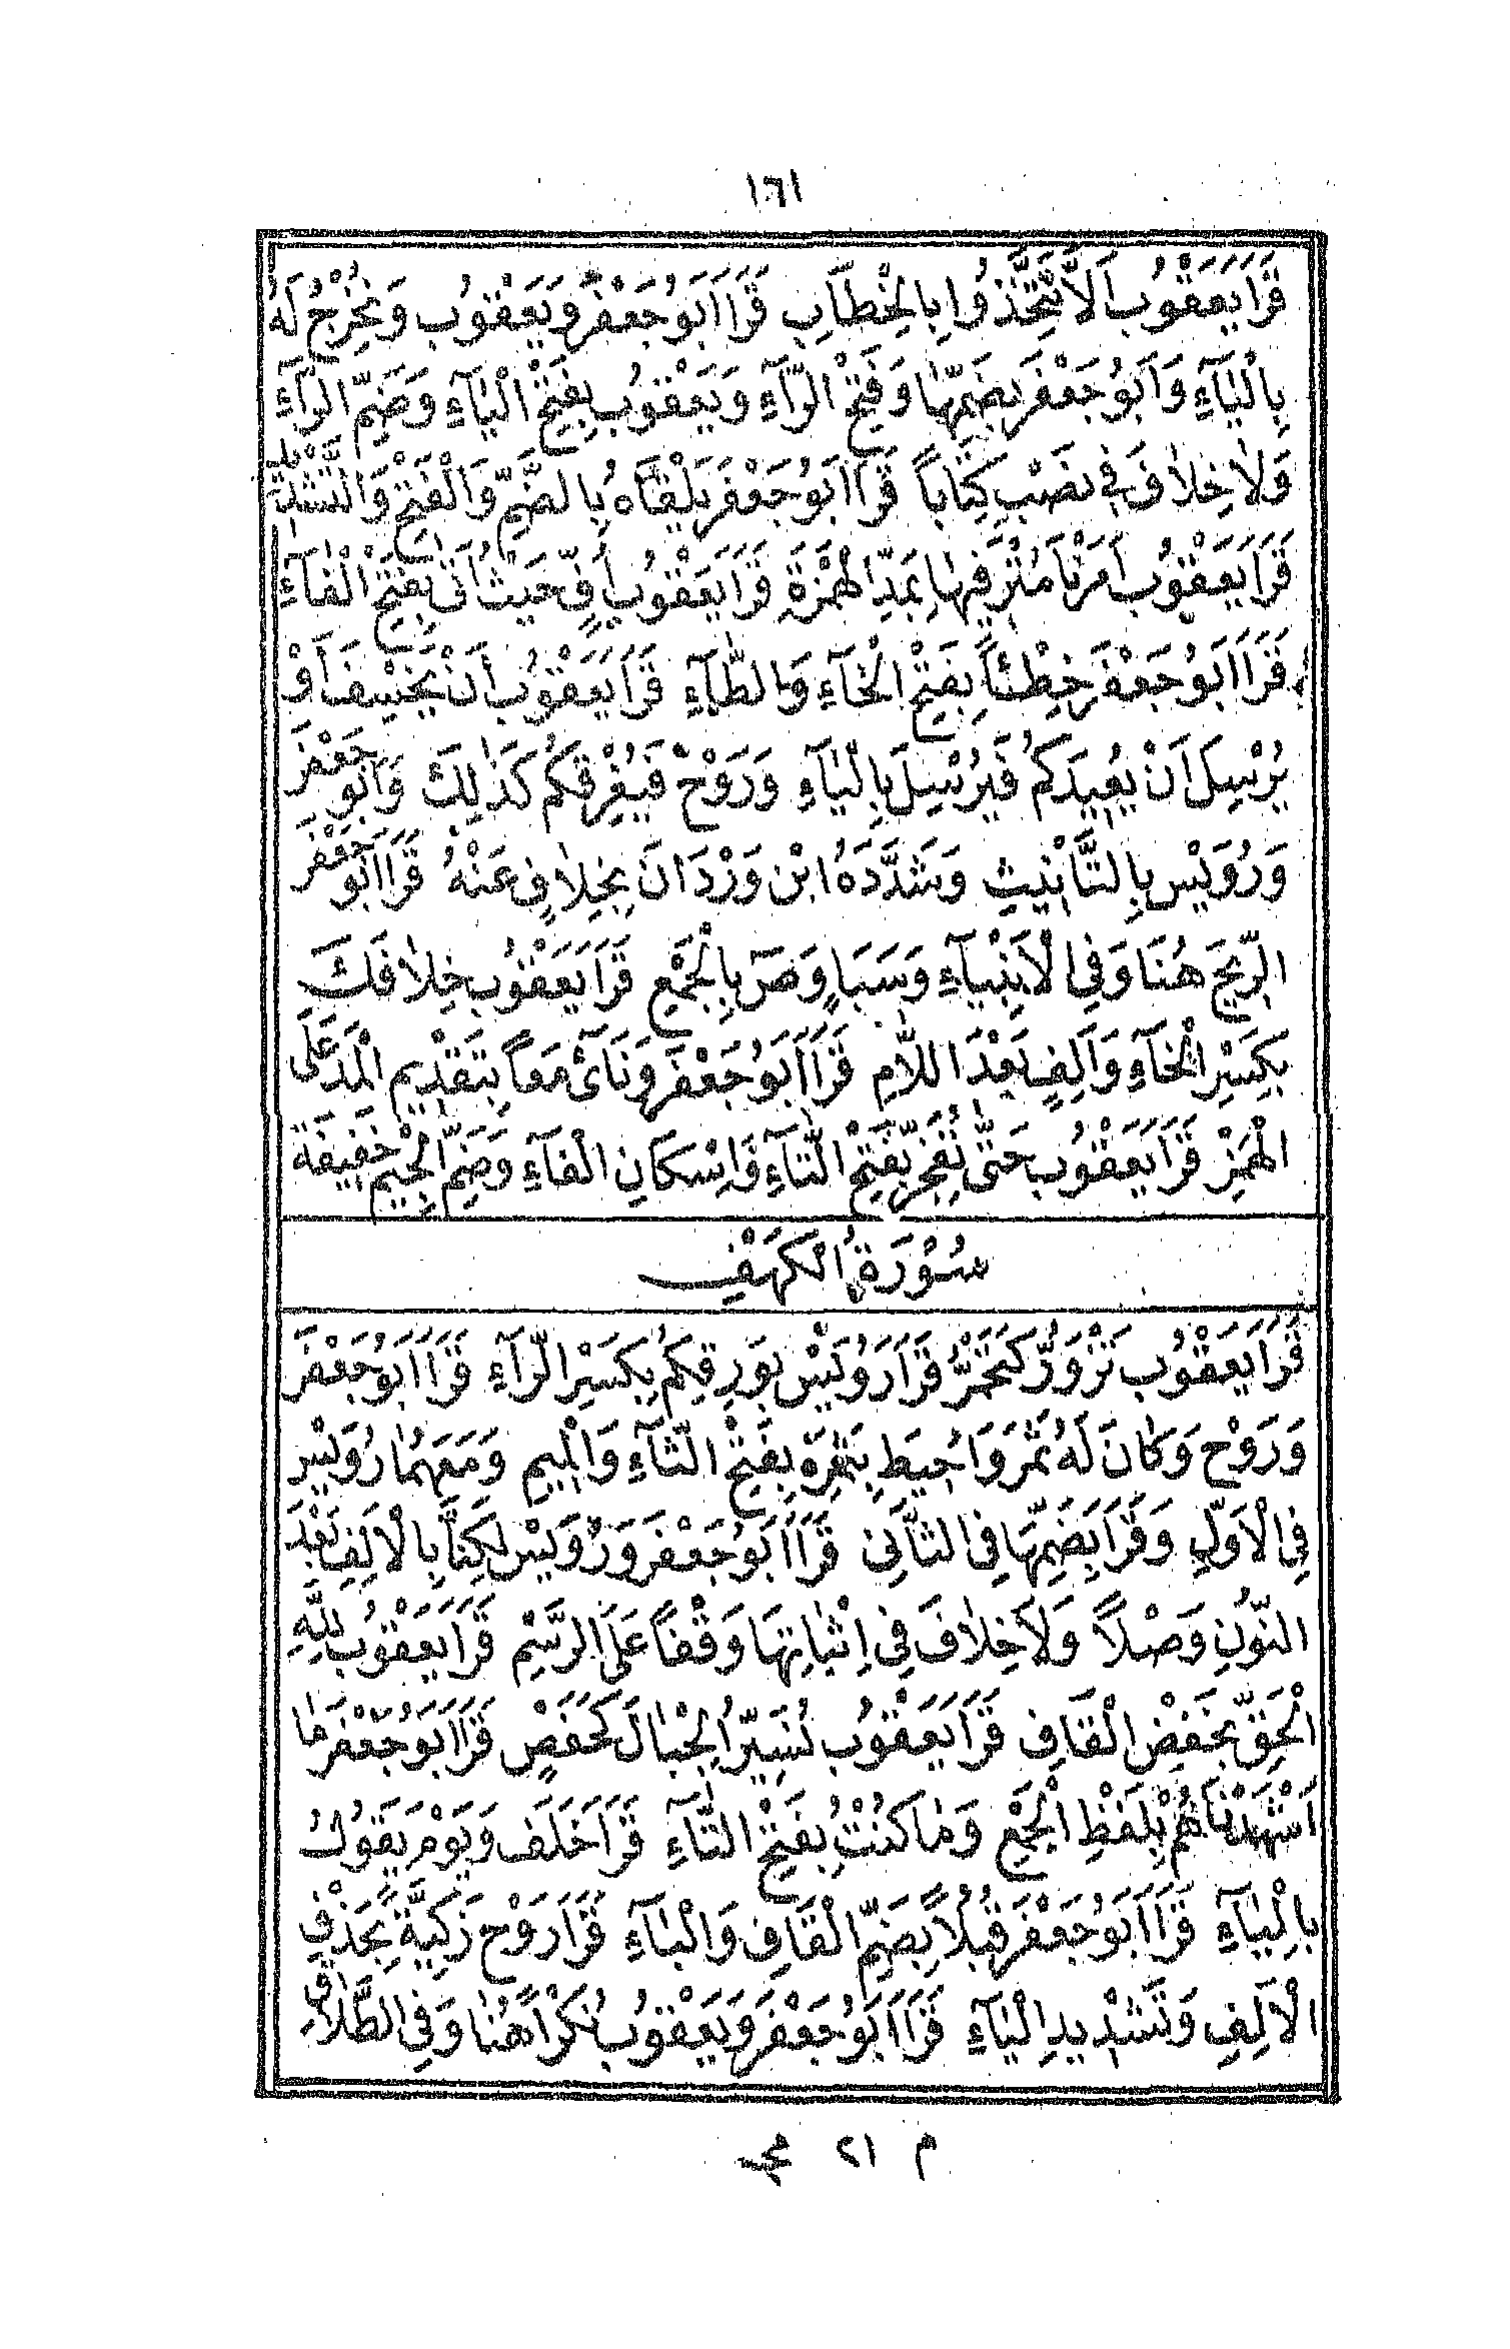 ١٦١
قَرَأَ يَعْقُوبُ اَلَّا تَتَّخِذُوا بِالْخِطَابِ قَرَأَ اَبُو جَعْفَرَ وَيَعْقُوبُ وَيُخْرِجُ لَهُ
بِالْيَآءِ وَاَبُو جَعْفَرَ بِضَمِّهَا وَفَتْحِ الرَّآءِ وَيَعْقُوبُ بِفَتْحِ الْيَآءِ وَضَمِّ الرَّآءِ
وَلَا خِلَافَ فِي نَصْبِ كِتَاباً قَرَأَ اَبُو جَعْفَرَ يَلْقَاهُ بِالضَّمِّ وَالْفَتْحِ وَالتَّشْدِيدِ
قَرَأَ يَعْقُوبُ اٰمَرْنَا مُتْرَفِيهَا بِمَدِّ الْهَمْزَةِ قَرَأَ يَعْقُوبُ اُفٍّ حَيْثُ اَتٰى بِفَتْحِ الْفَآءِ
قَرَأَ اَبُو جَعْفَرَ خِطْئاً بِفَتْحِ الْخَآءِ وَالطَّآءِ قَرَأَ يَعْقُوبُ اَنْ يَخْسِفَ اَوْ
يُرْسِلَ اَنْ يُعِيدَكُمْ فَيُرْسِلَ بِالْيَآءِ وَرَوْحٌ فَيُغْرِقَكُمْ كَذٰلِكَ وَاَبُو جَعْفَرَ
وَرُوَيْسٌ بِالتَّأْنِيثِ وَشَدَّدَهُ ابْنُ وَرْدَانَ بِخِلَافٍ عَنْهُ قَرَأَ اَبُو جَعْفَرَ
الرِّيحَ هُنَا وَفِي الْاَنْبِيَآءِ وَسَبَإٍ وَصَ بِالْجَمْعِ قَرَأَ يَعْقُوبُ خِلَافَكَ
بِكَسْرِ الْخَآءِ وَاَلِفٍ بَعْدَ اللَّامِ قَرَأَ اَبُو جَعْفَرَ وَنَاٰى مَعاً بِتَقْدِيمِ الْمَدِّ عَلَى
الْهَمْزِ قَرَأَ يَعْقُوبُ حَتّٰى تَفْجُرَ بِفَتْحِ التَّآءِ وَاِسْكَانِ الْفَآءِ وَضَمِّ الْجِيمِ خَفِيفَةً
سُورَةُ الْكَهْفِ
قَرَأَ يَعْقُوبُ تَزْوَرُّ كَتَحْمَرُّ قَرَأَ رُوَيْسٌ بِوَرِقِكُمْ بِكَسْرِ الرَّآءِ قَرَأَ اَبُو جَعْفَرَ
وَرَوْحٌ وَكَانَ لَهُ ثَمَرٌ وَاُحِيطَ بِثَمَرِهِ بِفَتْحِ الثَّآءِ وَالْمِيمِ وَمَعَهُمَا رُوَيْسٌ
فِي الْاَوَّلِ وَقَرَأَ بِضَمِّهَا فِي الثَّانِي قَرَأَ اَبُو جَعْفَرَ وَرُوَيْسٌ لٰكِنَّا بِالْاَلِفِ بَعْدَ
النُّونِ وَصْلاً وَلَا خِلَافَ فِي اِثْبَاتِهَا وَقْفاً عَلَى الرَّسْمِ قَرَأَ يَعْقُوبُ لِلّٰهِ
الْحَقِّ بِخَفْضِ الْقَافِ قَرَأَ يَعْقُوبُ نُسَيِّرُ الْجِبَالَ كَحَفْصٍ قَرَأَ اَبُو جَعْفَرَ مَا
اَشْهَدْنَاهُمْ بِلَفْظِ الْجَمْعِ وَمَا كُنْتَ بِفَتْحِ التَّآءِ قَرَأَ خَلَفٌ وَيَوْمَ يَقُولُ
بِالْيَآءِ قَرَأَ اَبُو جَعْفَرَ قُبُلاً بِضَمِّ الْقَافِ وَالْبَآءِ قَرَأَ رَوْحٌ زَكِيَّةً بِحَذْفِ
الْاَلِفِ وَتَشْدِيدِ الْيَآءِ قَرَأَ اَبُو جَعْفَرَ وَيَعْقُوبُ نُكْراً هُنَا وَفِي الطَّلَاقِ
م ٢١